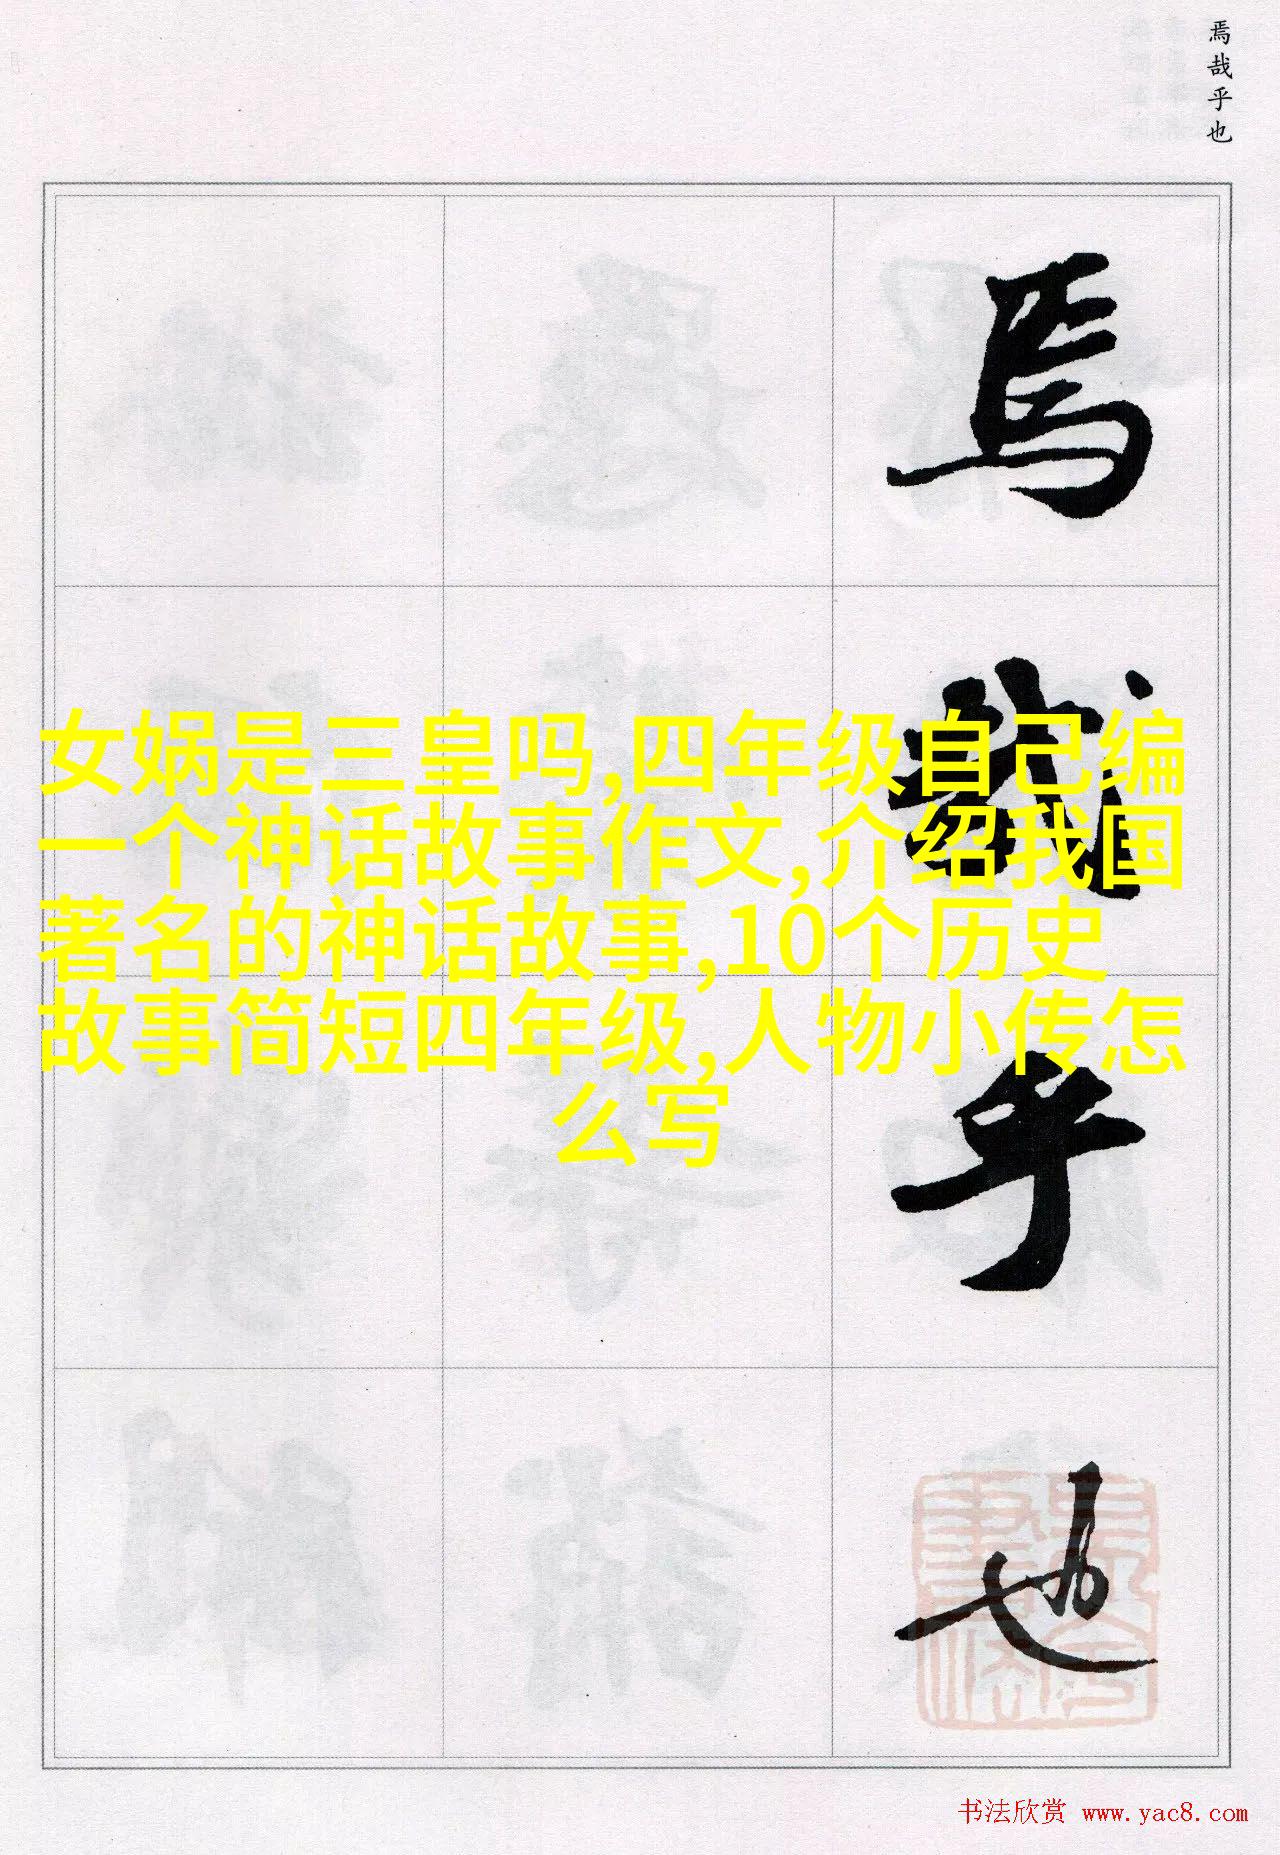 焉哉乎也
焉
哉
乎
也
女娲是三皇吗,四年级自己编
一个神话故事作文,介绍我国
著名的神话故事,10个历史
故事简短四年级,人物小传怎
么写
书法欣赏 www.yac8.com